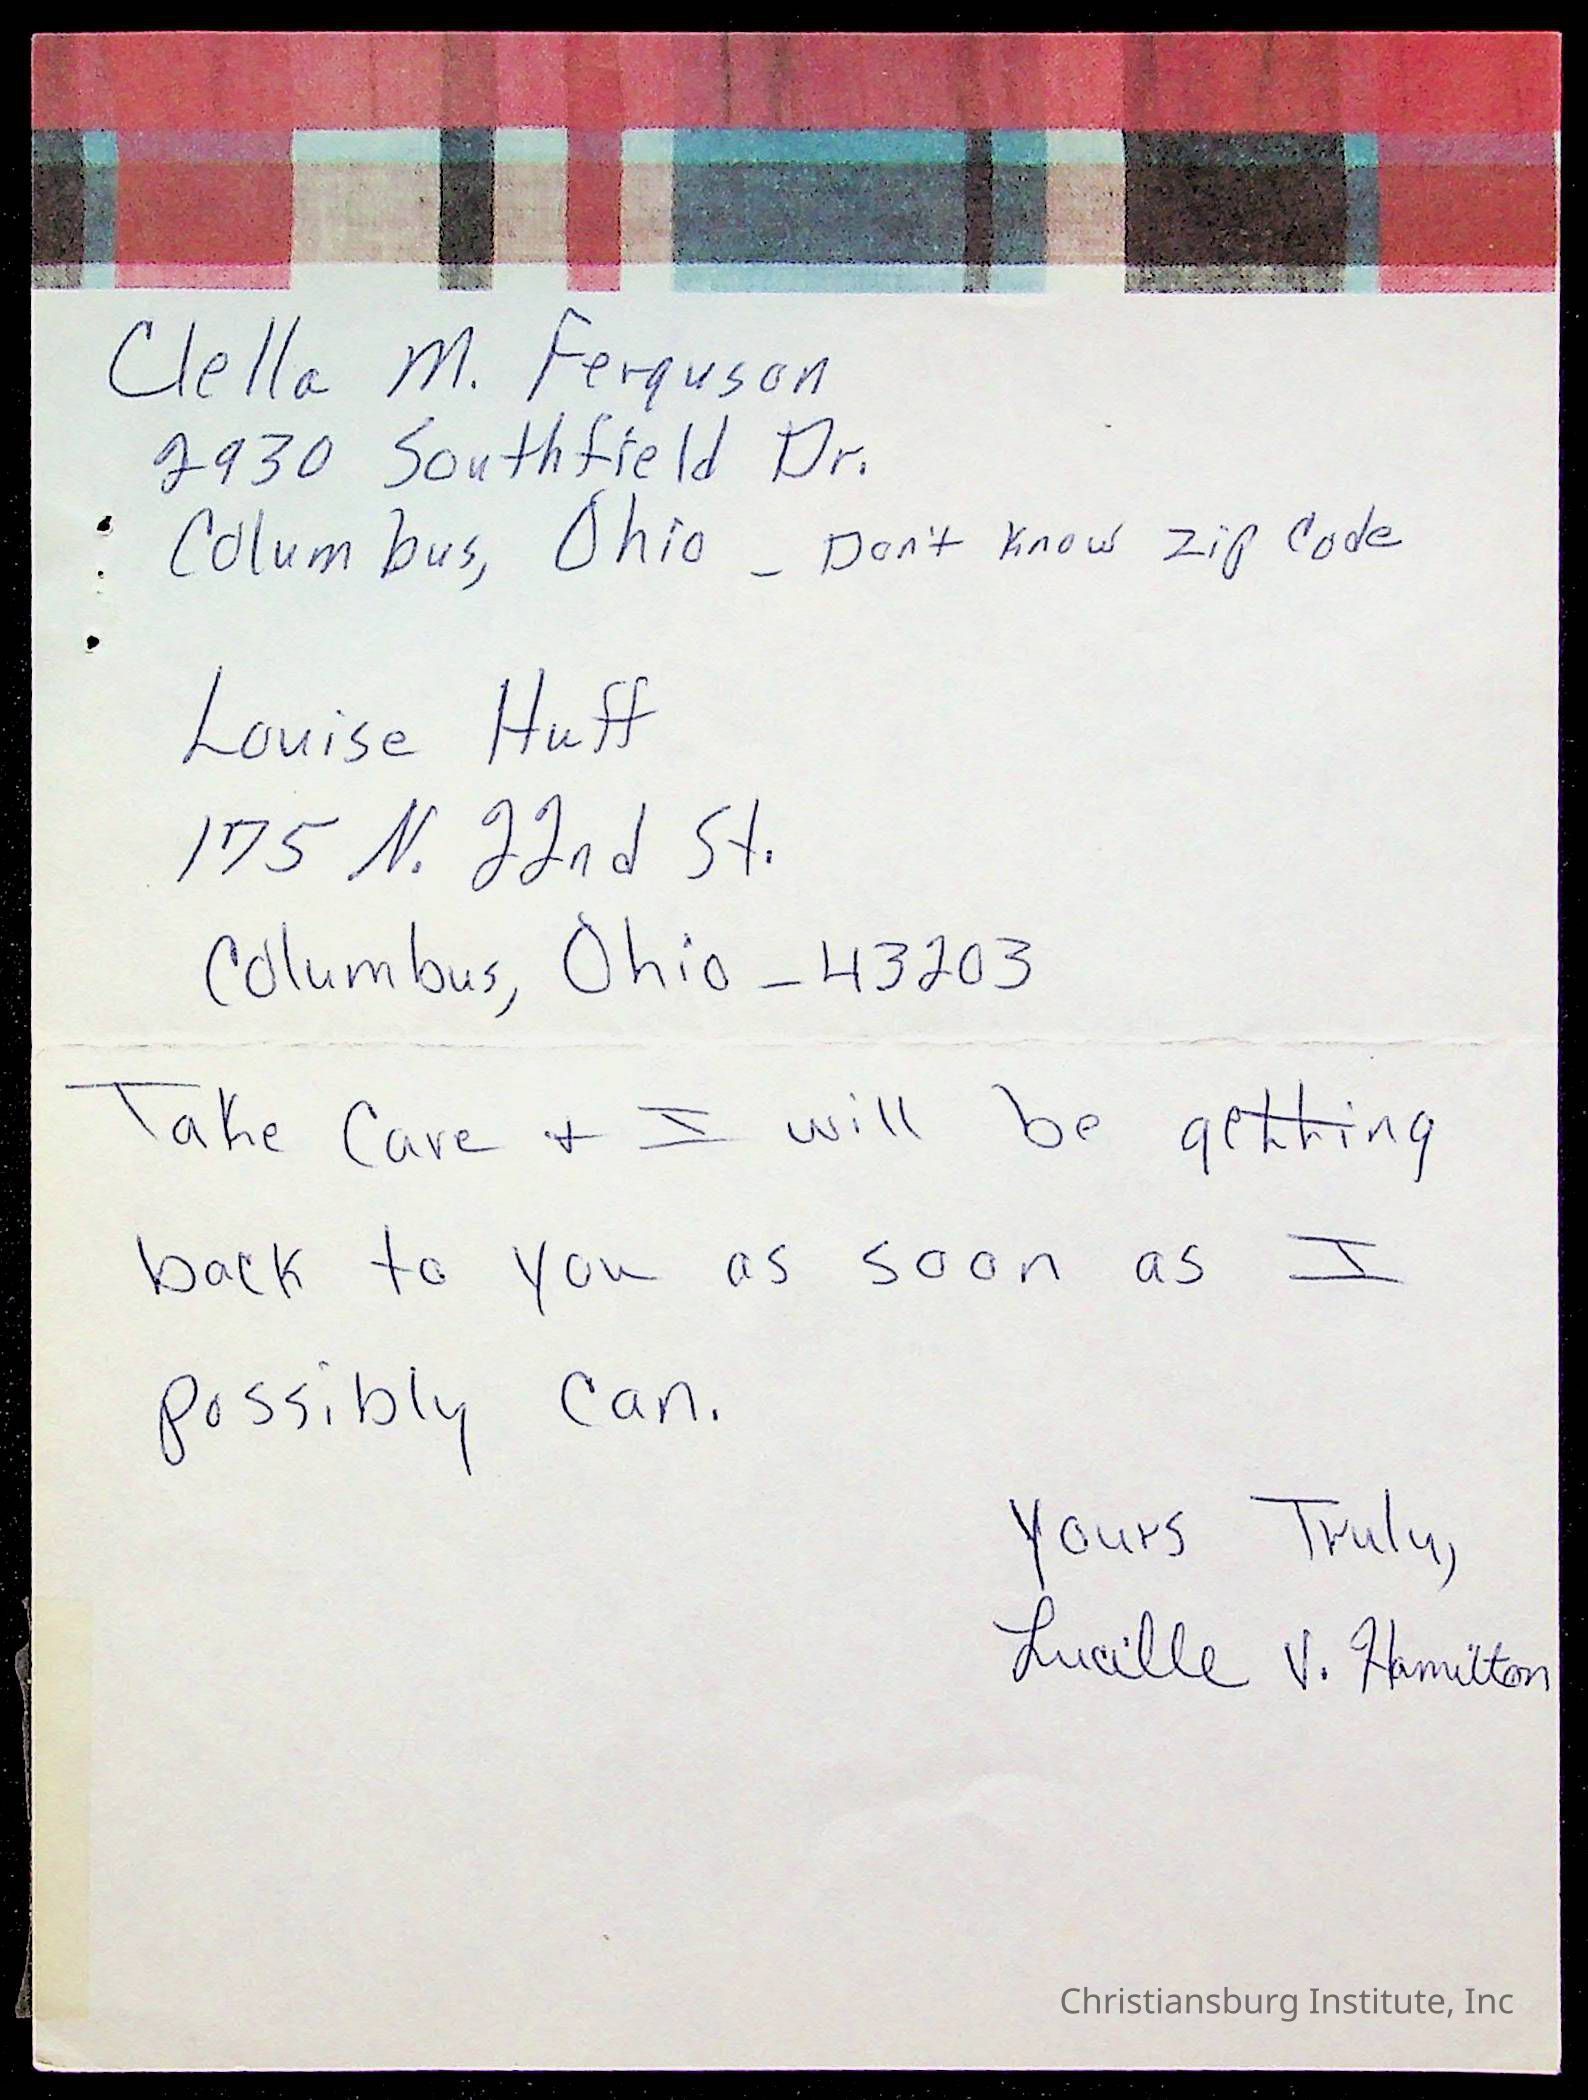 Clella M. Ferguson
2930 Southfield Dr.
Columbus, Ohio - Don't Know Zip Code
Louise Huff
175 N. 22nd St.
Columbus, Ohio - 43203
Take Care + I will be getting
back to you as soon as I
possibly can.
Yours Truly,
Lucille V. Hamilton
Christiansburg Institute, Inc